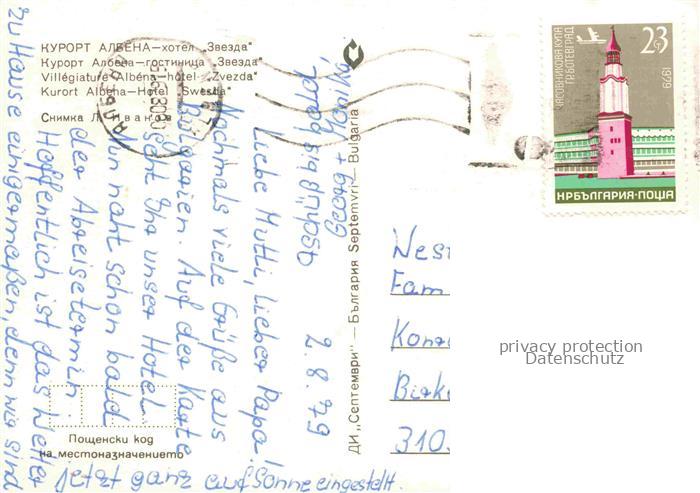 КУРОРТ АЛБЕНА—хотел „Звезда"
Курорт Албена—гостиница "Звезда"
Villégiature Albéna-hôtel „Zvezda"
Kurort Albena—Hotel „Swesda"
Снимка Л.
2.8.79
Liebe Mutti, lieber Papa!
Nochmals viele Grüße aus
Bulgarien. Auf der Karte
seht Ihr unser Hotel.
Nun naht schon bald
der Abreisetermin.
Hoffentlich ist das Wetter
zu Hause einigermaßen, denn wir sind
jetzt ganz auf Sonne eingestellt.
Georg + Monika
Пощенски код
на местоназначението
ДИ „Септември" — България Septemvri — Bulgaria
23
ЧАСОВНИКОВА КУЛА
ГР. БОТЕВГРАД
1979
НР БЪЛГАРИЯ·ПОЩА
Fam
Birk
310
privacy protection
Datenschutz